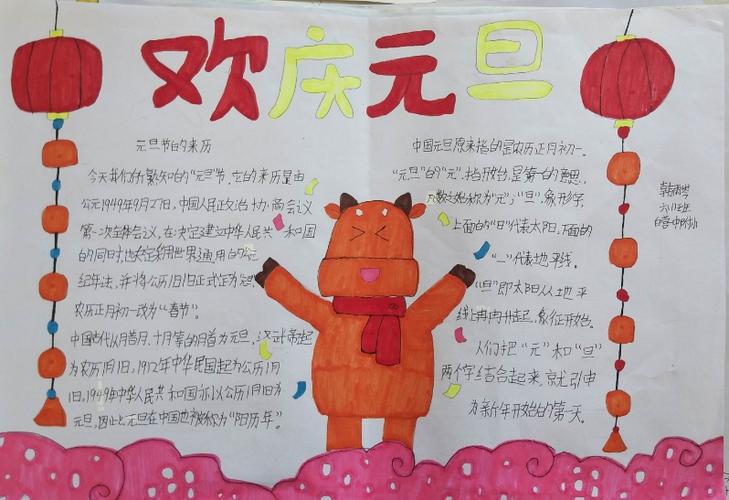 欢庆元旦
元旦节的来历
今天我们所熟知的“元旦”节,它的来历是由
公元1949年9月27日,中国人民政治协商会议
第一次全体会议,在决定建立中华人民共和国
的同时,也决定采用世界通用的公元
纪年法,并将公历1月1日正式定为元旦,
农历正月初一改为“春节”。
中国古代以月首月,十月第的月首为元旦,汉武帝起
为农历1月1日,1912年中华民国起为公历1月
1日,1949年中华人民共和国亦以公历1月1日为
元旦,因此,元旦在中国也被称为“阳历年”。
中国元旦原来指的是农历正月初一。
“元旦”的“元”,指开始,是第一的意思,
凡数之始称为“元”;“旦”,象形字,
上面的“日”代表太阳,下面的
“一”代表地平线。
“旦”即太阳从地平
线上冉冉升起,象征开始。
人们把“元”和“旦”
两个字结合起来,就引申
为新年开始的第一天。